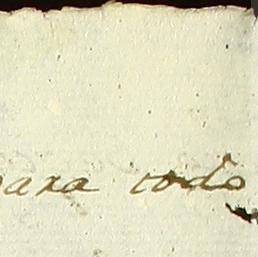 para todo